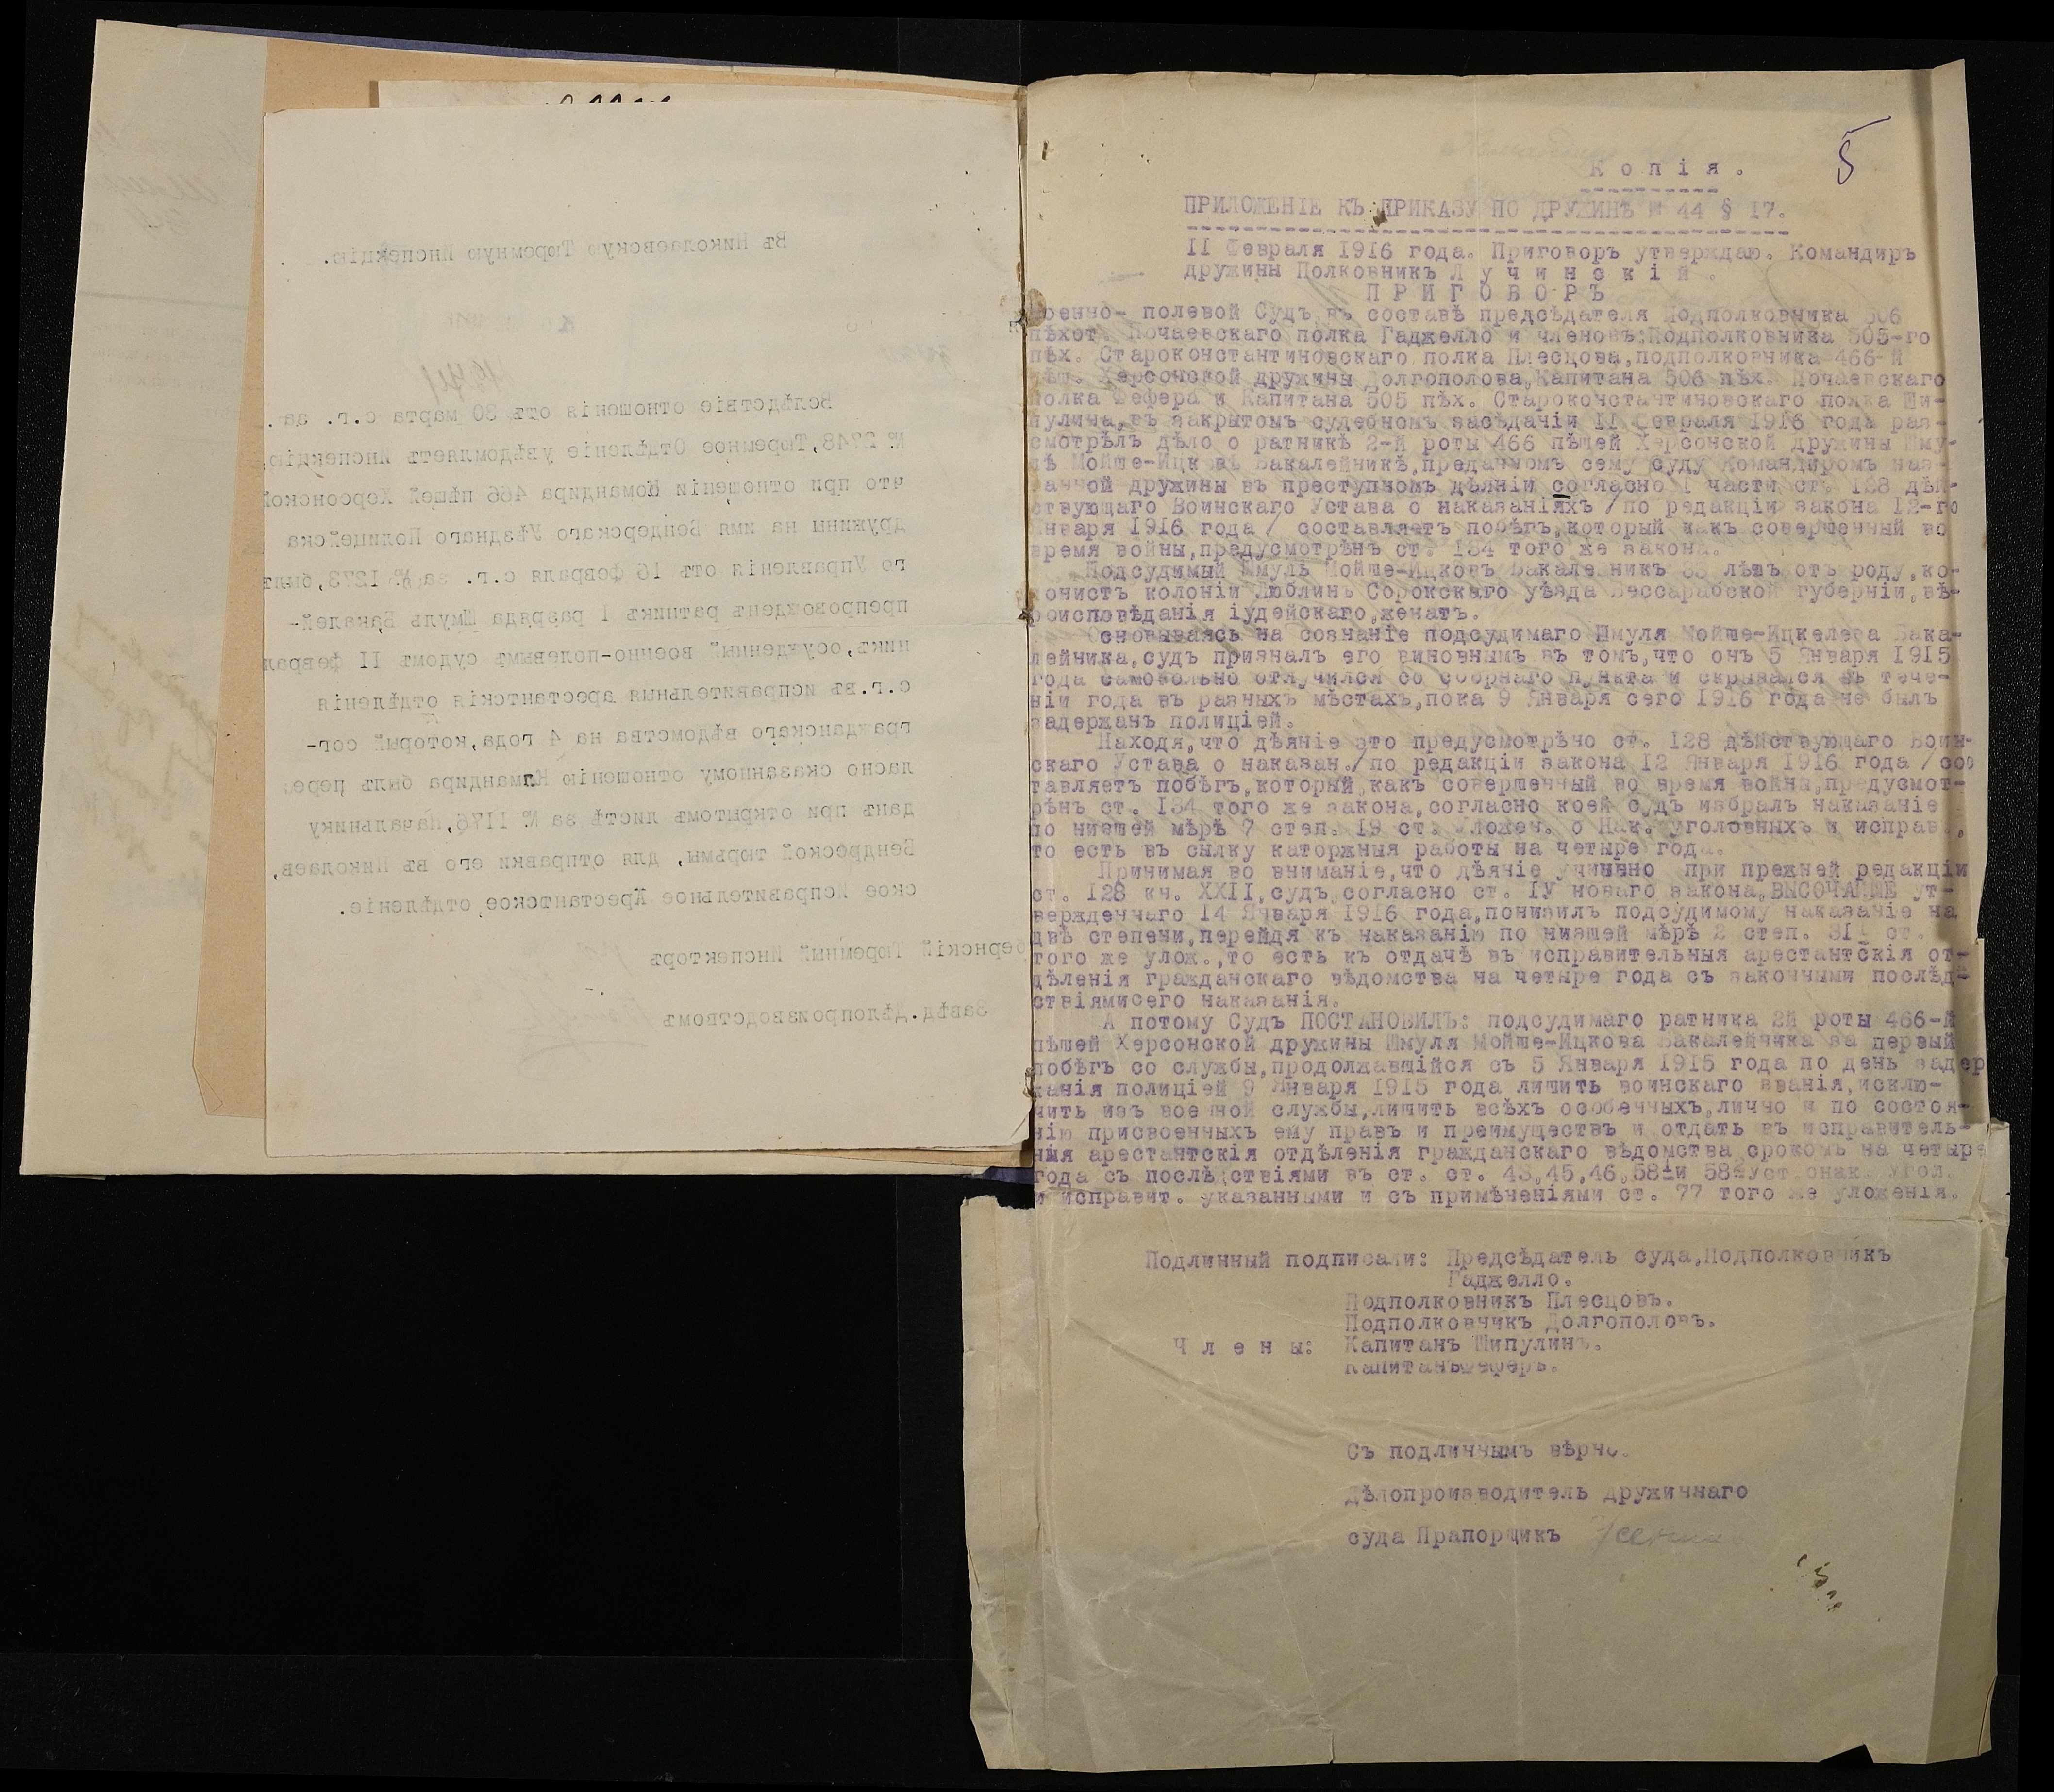 Въ Николаевскую Тюремную Инспекцію.
Вслѣдствіе отношенія отъ 30 марта с.г. за
№ 2748, Тюремное Отдѣленіе увѣдомляетъ Инспекцію,
что при отношеніи Командира 466 пѣшей Херсонской
дружины на имя Бендерскаго Уѣзднаго Полицейска
го Управленія отъ 16 февраля с.г. за № 1273, былъ
препровожденъ ратникъ I разряда Шмуль Бакалей-
никъ, осужденный военно-полевымъ судомъ II феврал
с.г. въ исправительныя арестантскія отдѣленія
гражданскаго вѣдомства на 4 года, который сог-
ласно сказанному отношенію Командира былъ пере
данъ при открытомъ листѣ за № 1176, Начальнику
Бендерской тюрьмы, для отправки его въ Николаев,
ское Исправительное Арестантское отдѣленіе.
бернскій Тюремный Инспекторъ
Завѣд. дѣлопроизводствомъ
5
Копія.
ПРИЛОЖЕНІЕ КЪ ПРИКАЗУ ПО ДРУЖИНѢ № 44 § 17.
II Февраля 1916 года. Приговоръ утверждаю. Командиръ
дружины Полковникъ Лучинскій.
ПРИГОВОРЪ
оенно- полевой Судъ въ составѣ предсѣдателя Подполковника 506
пѣхот. Почаевскаго полка Гаджелло и членовъ: Подполковника 505-го
пѣх. Староконстантиновскаго полка Плесцова, подполковника 466-й
пѣш. Херсонской дружины Долгополова, Капитана 506 пѣх. Почаевскаго
полка Шефера и Капитана 505 пѣх. Староконстантиновскаго полка Ши-
пулина, въ закрытомъ судебномъ засѣданіи II Февраля 1916 года раз-
смотрѣлъ дѣло о ратникѣ 2-й роты 466 пѣшей Херсонской дружины Шму-
лѣ Мойше-Ицковѣ Бакалейникѣ, преданномъ сему суду Командиромъ наз-
ванной дружины въ преступномъ дѣяніи согласно I части ст. 128 дѣй-
ствующаго Воинскаго Устава о наказаніяхъ /по редакціи закона 12-го
Января 1916 года / составляетъ побѣгъ, который какъ совершенный во
время войны, предусмотрѣнъ ст. 134 того же закона.
Подсудимый Шмуль Мойше-Ицковъ Бакалейникъ лѣтъ отъ роду, ко-
лонистъ колоніи Люблинъ Сорокскаго уѣзда Бессарабской губерніи, вѣ-
роисповѣданія іудейскаго, женатъ.
Основываясь на сознаніе подсудимаго Шмуля Мойше-Ицкелева Бака-
лейника, судъ призналъ его виновнымъ въ томъ, что онъ 5 Января 1915
года самовольно отлучился со сборнаго пункта и скрывался въ тече-
ніи года въ разныхъ мѣстахъ, пока 9 Января сего 1916 года не былъ
задержанъ полиціей.
Находя, что дѣяніе это предусмотрѣно ст. 128 дѣйствующаго Воин-
скаго Устава о наказан. /по редакціи закона 12 Января 1916 года / сос
тавляетъ побѣгъ, который, какъ совершенный во время война, предусмот-
рѣнъ ст. 134 того же закона, согласно коей судъ избралъ наказаніе
по низшей мѣрѣ 7 степ. 19 ст. Уложен. о Нак. уголовныхъ и исправ.,
то есть въ сылку каторжныя работы на четыре года.
Принимая во вниманіе, что дѣяніе учинено при прежней редакціи
ст. 128 кн. XXII, судъ, согласно ст. IУ новаго закона, ВЫСОЧАЙШЕ ут-
вержденнаго 14 Января 1916 года, понизилъ подсудимому наказаніе на
двѣ степени, перейдя къ наказанію по низшей мѣрѣ 2 степ. 31I ст.
того же улож., то есть къ отдачѣ въ исправительныя арестантскія от-
дѣленія гражданскаго вѣдомства на четыре года съ законными послѣд-
ствіямисего наказанія.
А потому Судъ ПОСТАНОВИЛЪ: подсудимаго ратника 2й роты 466-й
пѣшей Херсонской дружины Шмуля Мойше-Ицкова Бакалейника за первый
побѣгъ со службы, продолжавшійся съ 5 Января 1915 года по день задер
жанія полиціей 9 Января 1915 года лишить воинскаго званія, исклю-
чить изъ военной службы, лишить всѣхъ особенныхъ, лично и по состоя-
нію присвоенныхъ ему правъ и преимуществъ и отдать въ исправитель-
ныя арестантскія отдѣленія гражданскаго вѣдомства срокомъ на четыре
года съ послѣдствіями въ ст. ст. 43, 45, 46, 58¹и 58² Уст. онак. Угол.
и исправит. указанными и съ примѣненіями ст. 77 того же уложенія.
Подлинный подписали: Предсѣдатель суда, Подполковникъ
Гаджелло.
Подполковникъ Плесцовъ.
Подполковникъ Долгополовъ.
Члены: Капитанъ Шипулинъ.
КапитанъШеферъ.
Съ подлиннымъ вѣрно.
Дѣлопроизводитель дружиннаго
суда Прапорщикъ